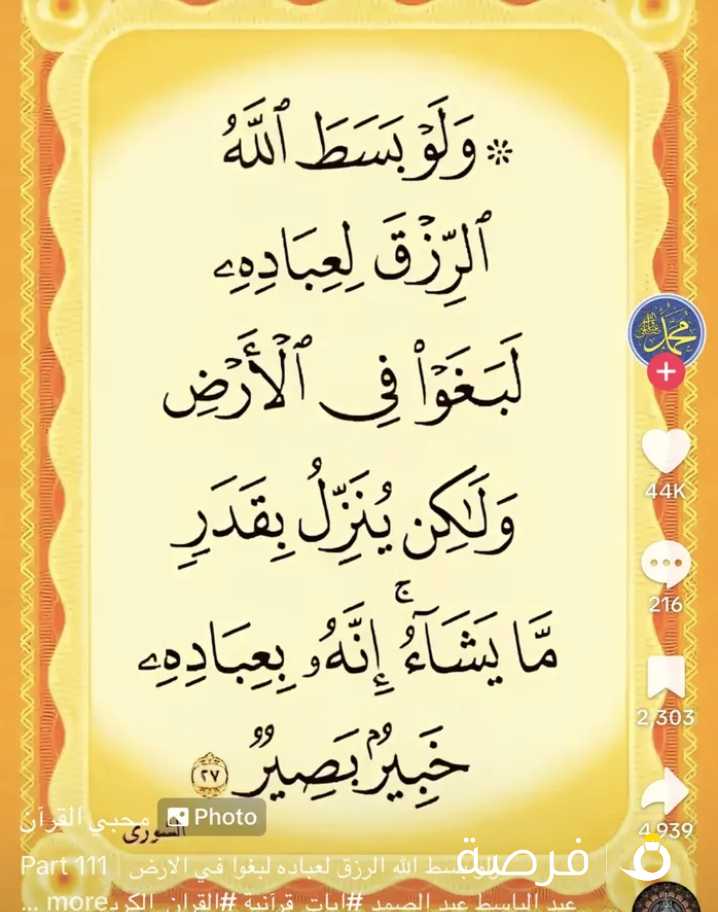 * وَلَوْ بَسَطَ ٱللَّهُ
ٱلرِّزْقَ لِعِبَادِهِۦ
لَبَغَوْا۟ فِى ٱلْأَرْضِ
وَلَٰكِن يُنَزِّلُ بِقَدَرٍ
مَّا يَشَآءُ ۚ إِنَّهُۥ بِعِبَادِهِۦ
خَبِيرٌۢ بَصِيرٌ ٢٧
الشورى
محمد ﷺ
44K
216
2,303
4,939
محبي القرآن
Photo
فرصة
Part 111 | ولو بسط الله الرزق لعباده لبغوا في الارض
عبد الباسط عبد الصمد #ايات_قرآنية #القران_الكرد more ...